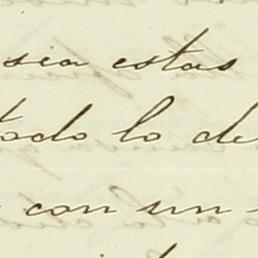 sea estas
todo lo de
con un